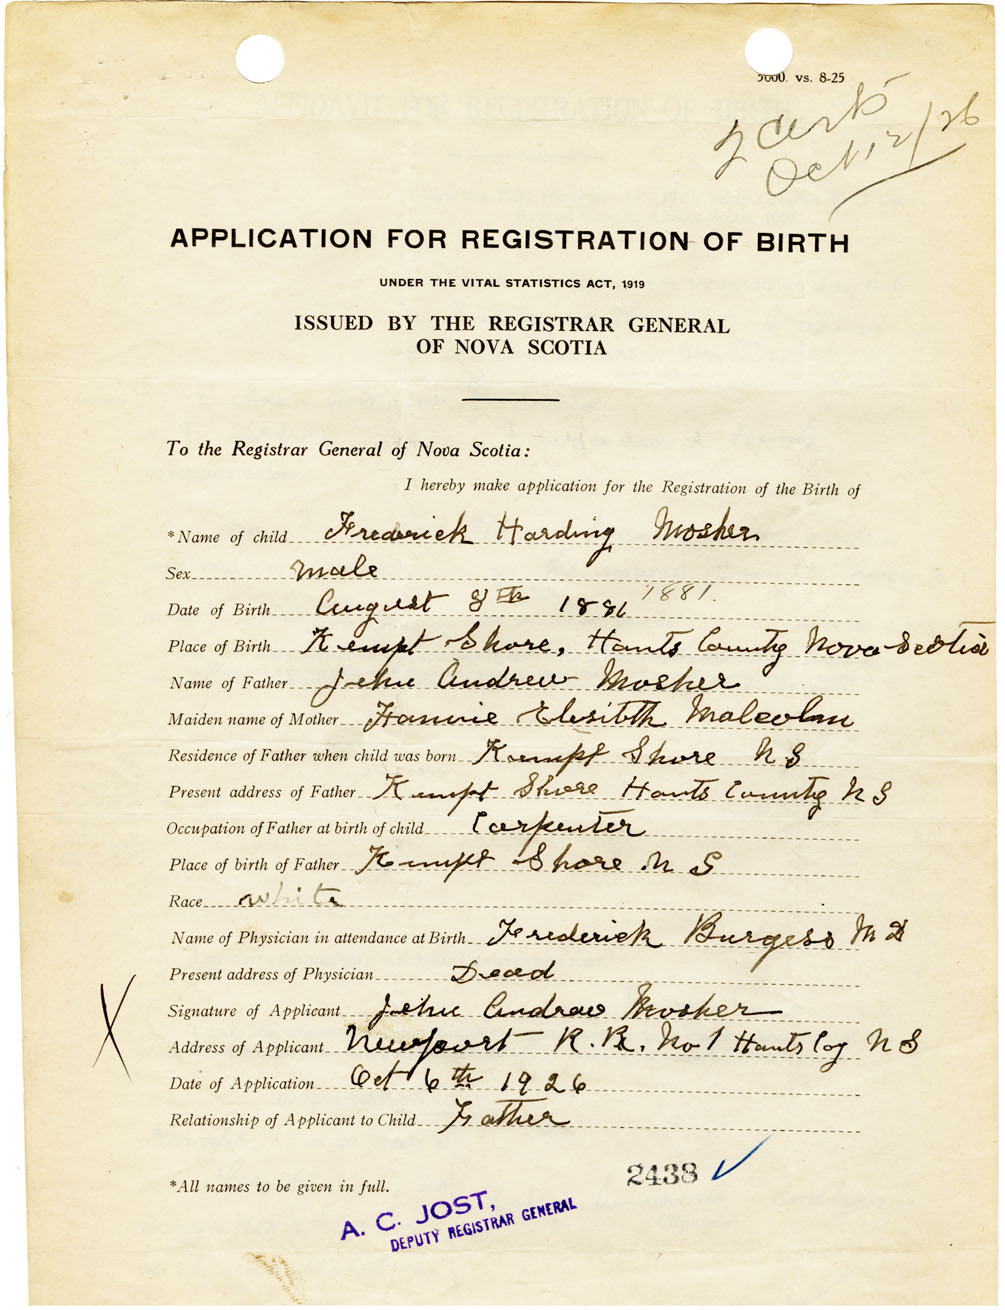 5000. vs. 8-25
2 certs
Oct 12/26
APPLICATION FOR REGISTRATION OF BIRTH
UNDER THE VITAL STATISTICS ACT, 1919
ISSUED BY THE REGISTRAR GENERAL
OF NOVA SCOTIA
To the Registrar General of Nova Scotia:
I hereby make application for the Registration of the Birth of
*Name of child Frederick Harding Mosher
Sex male
Date of Birth August 8th 1881 1881.
Place of Birth Kempt Shore, Hants County Nova Scotia
Name of Father Jehu Andrew Mosher
Maiden name of Mother Fannie Malcolm
Residence of Father when child was born Kempt Shore N S
Present address of Father Kempt Shore Hants County N S
Occupation of Father at birth of child Carpenter
Place of birth of Father Kempt Shore N S
Race white
Name of Physician in attendance at Birth Frederick Burgess M D
Present address of Physician Dead
Signature of Applicant Jehu Andrew Mosher
Address of Applicant Newport R. R. No 1 Hants Coy N S
Date of Application Oct 6th 1926
Relationship of Applicant to Child Father
*All names to be given in full.
2438
A. C. JOST,
DEPUTY REGISTRAR GENERAL